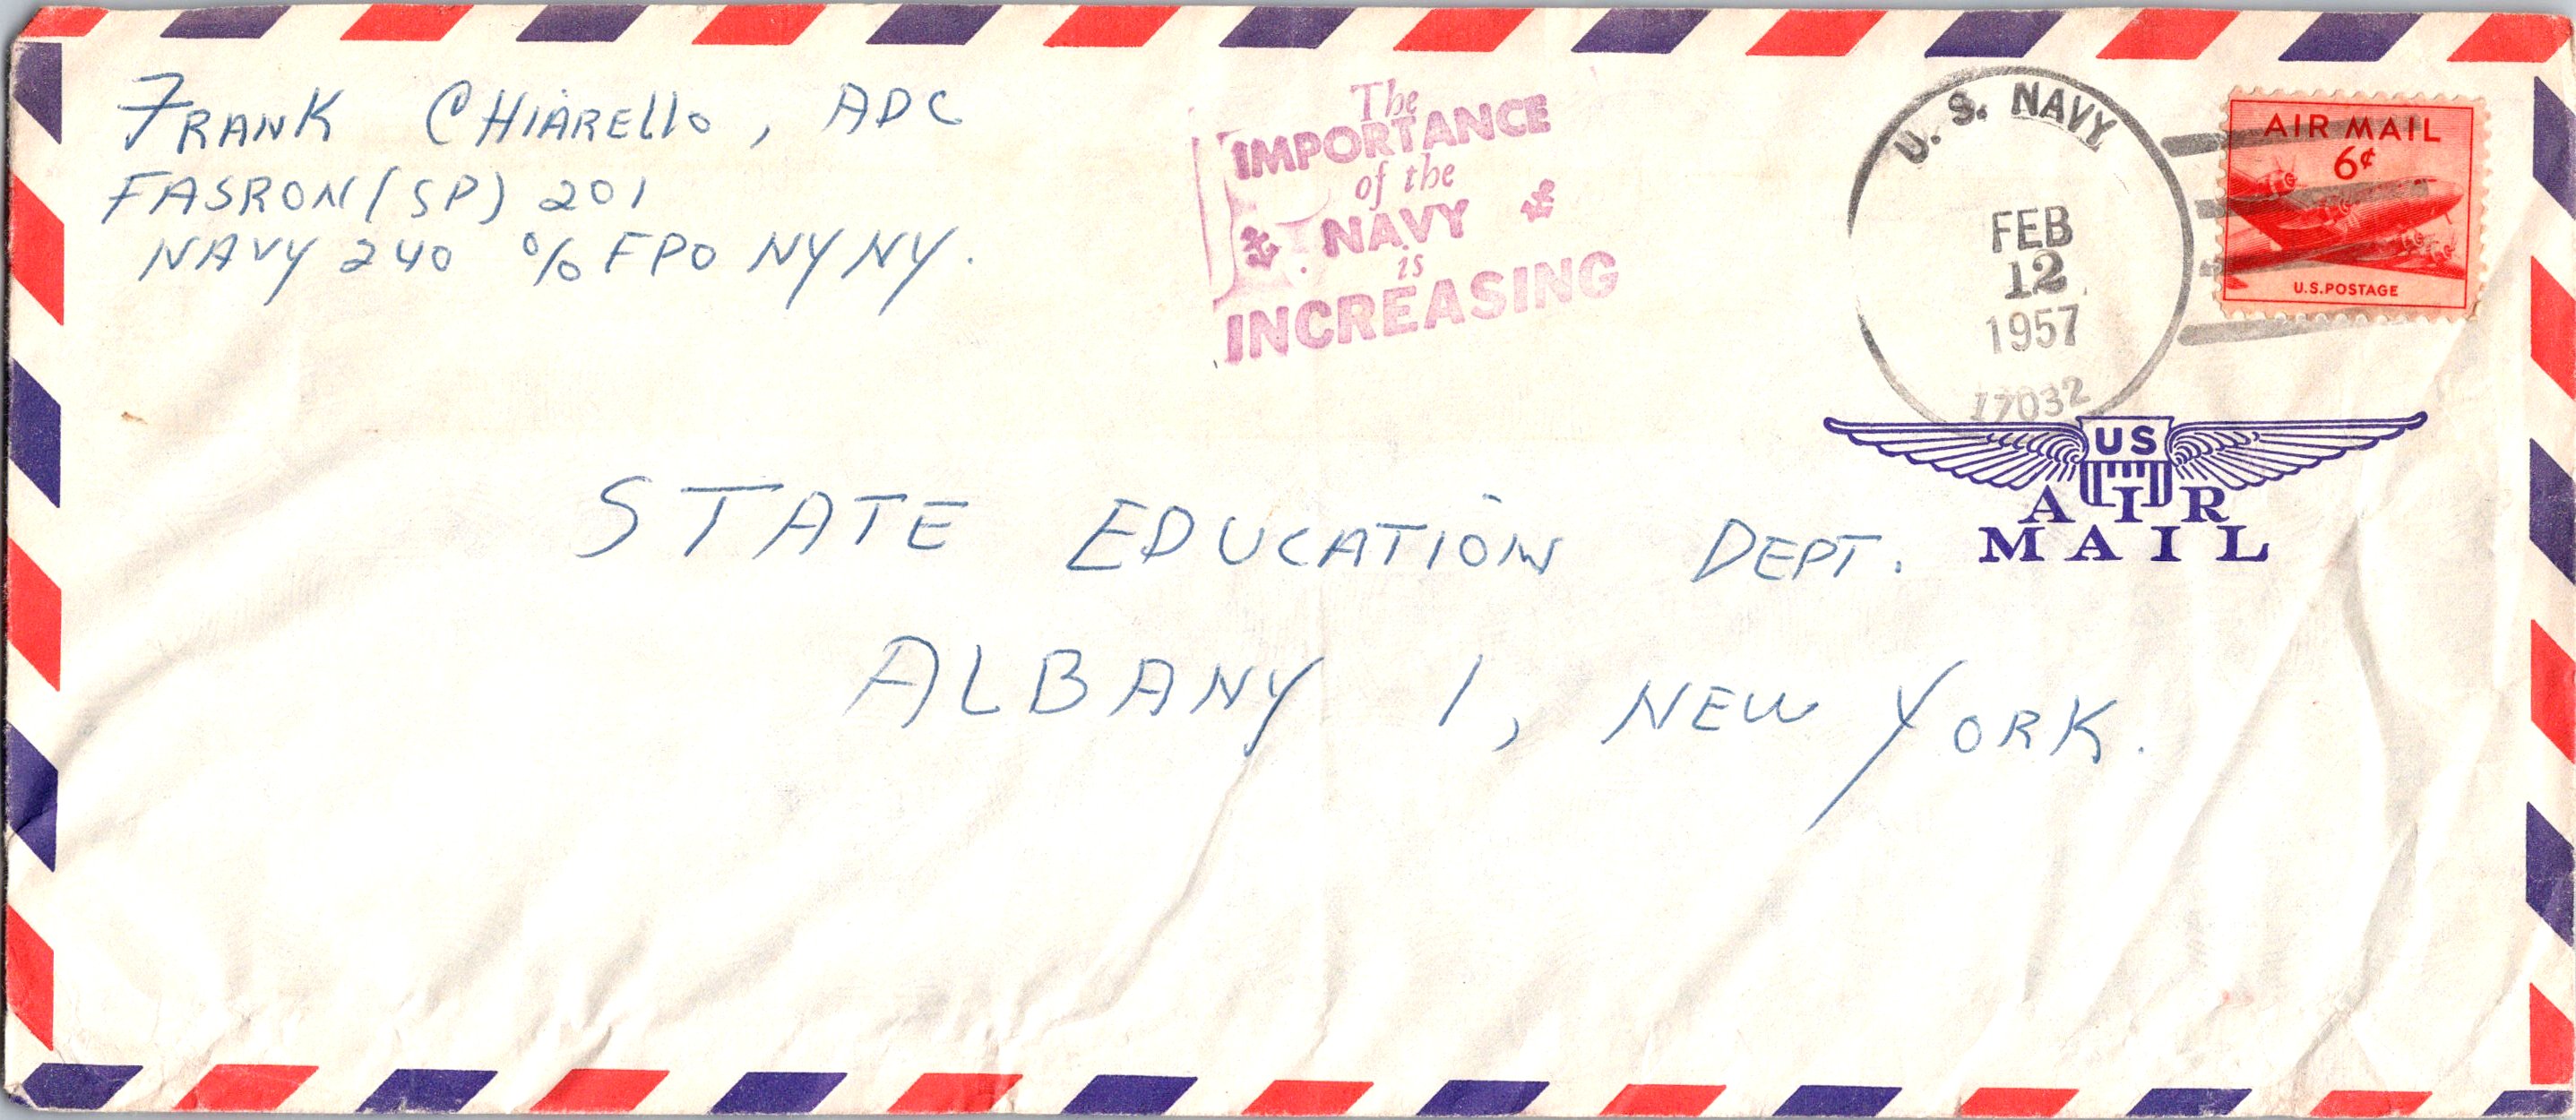 FRANK CHIARELLO, ADC
FASRON (SP) 201
NAVY 240 % FPO NY NY.
The
IMPORTANCE
of the
NAVY
is
INCREASING
U. S. NAVY
FEB
12
1957
17032
AIR MAIL
6¢
U.S. POSTAGE
US
AIR
MAIL
STATE EDUCATION DEPT.
ALBANY 1, NEW YORK.